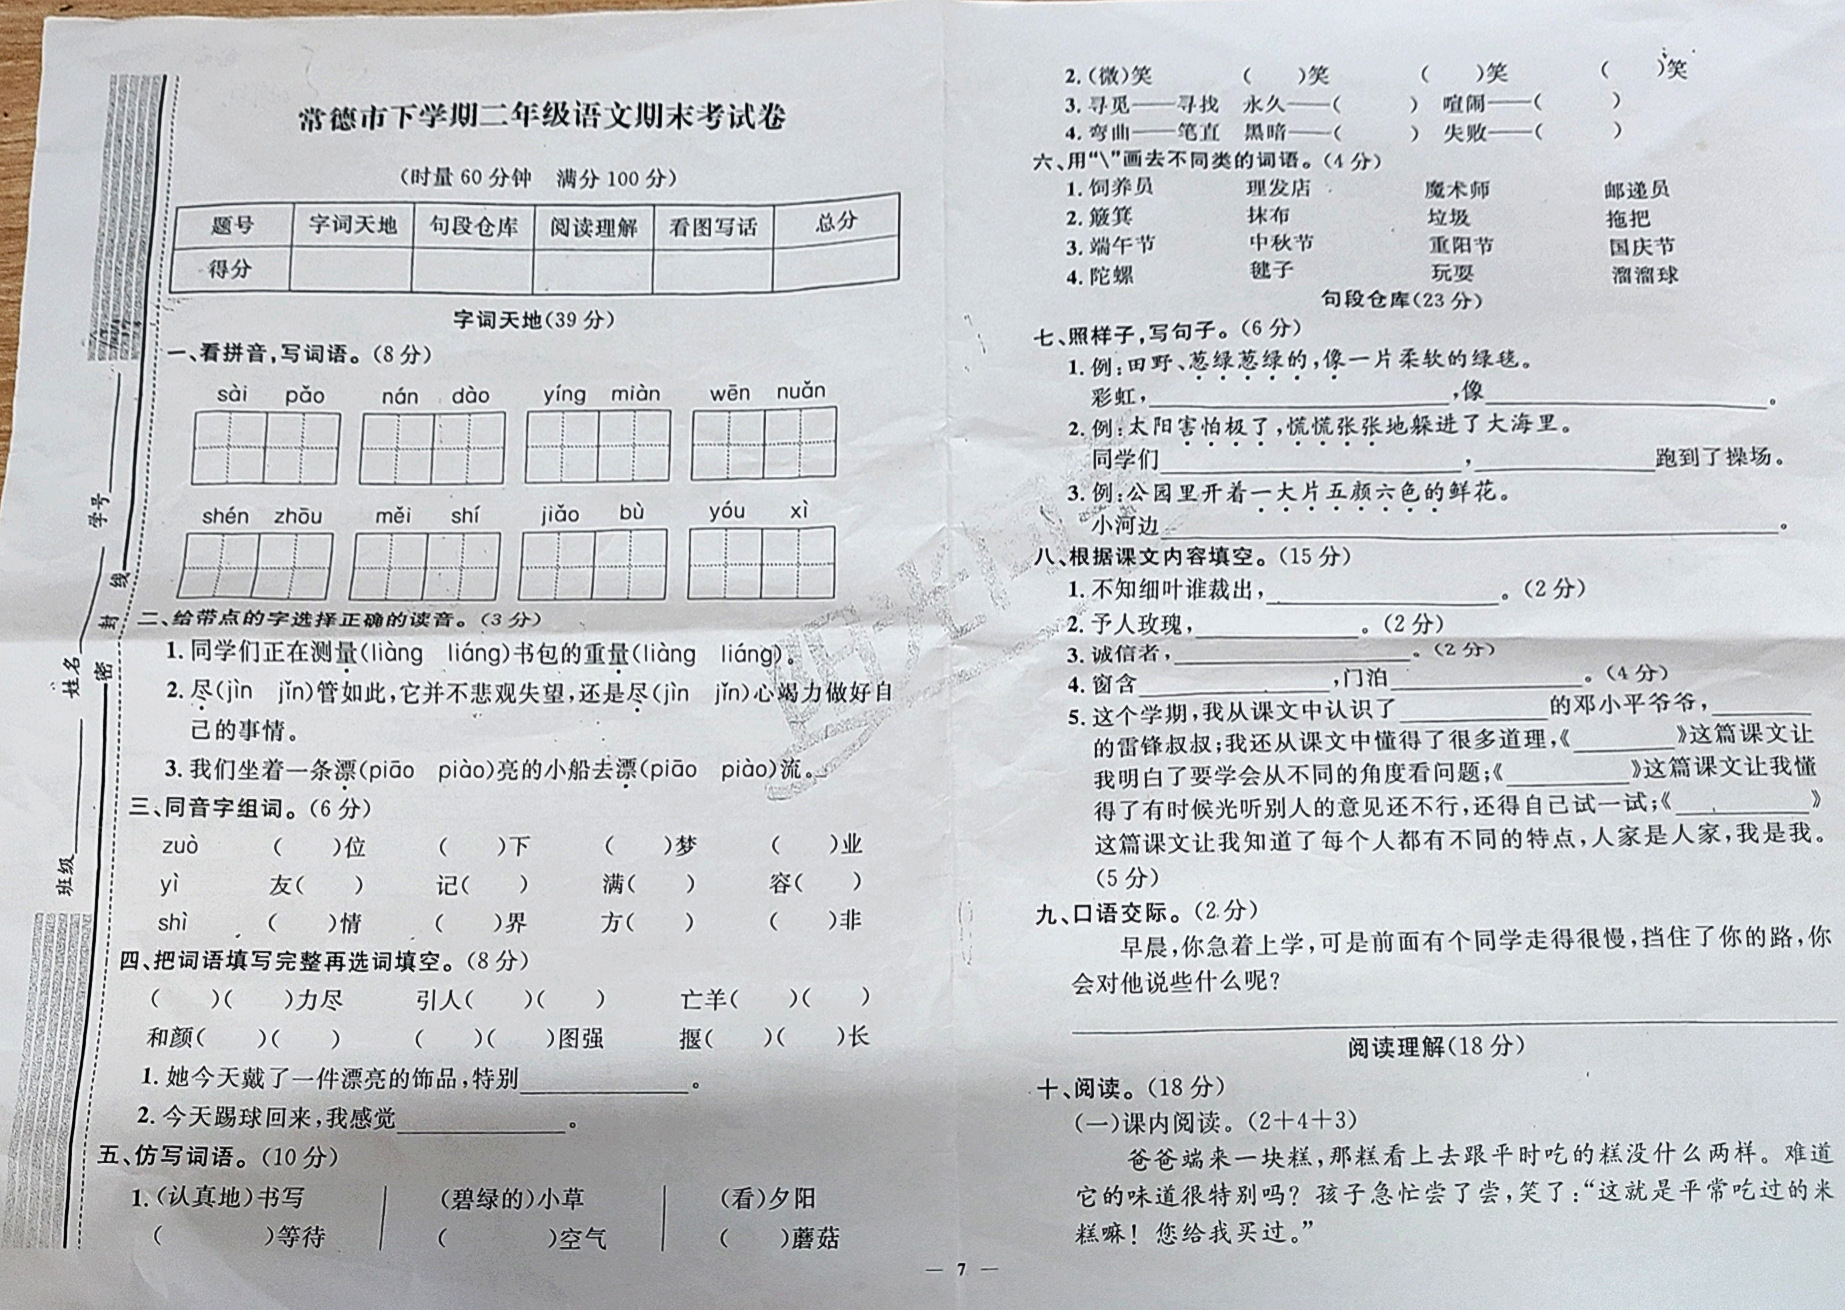 常德市下学期二年级语文期末考试卷
(时量 60 分钟 满分 100 分)
题号 字词天地 句段仓库 阅读理解 看图写话 总分
得分
字词天地(39 分)
一、看拼音,写词语。(8 分)
sài pǎo nán dào yíng miàn wēn nuǎn
shén zhōu měi shí jiǎo bù yóu xì
二、给带点的字选择正确的读音。(3 分)
1. 同学们正在测量(liàng liáng)书包的重量(liàng liáng)。
2. 尽(jìn jǐn)管如此,它并不悲观失望,还是尽(jìn jǐn)心竭力做好自
己的事情。
3. 我们坐着一条漂(piāo piào)亮的小船去漂(piāo piào)流。
三、同音字组词。(6 分)
zuò ( )位 ( )下 ( )梦 ( )业
yì 友( ) 记( ) 满( ) 容( )
shì ( )情 ( )界 方( ) ( )非
四、把词语填写完整再选词填空。(8 分)
( )( )力尽 引人( )( ) 亡羊( )( )
和颜( )( ) ( )( )图强 揠( )( )长
1. 她今天戴了一件漂亮的饰品,特别____________。
2. 今天踢球回来,我感觉____________。
五、仿写词语。(10 分)
1. (认真地)书写 (碧绿的)小草 (看)夕阳
( )等待 ( )空气 ( )蘑菇
班级
姓名
学号
密
封
线
2. (微)笑 ( )笑 ( )笑 ( )笑
3. 寻觅——寻找 永久——( ) 喧闹——( )
4. 弯曲——笔直 黑暗——( ) 失败——( )
六、用“\”画去不同类的词语。(4 分)
1. 饲养员 理发店 魔术师 邮递员
2. 簸箕 抹布 垃圾 拖把
3. 端午节 中秋节 重阳节 国庆节
4. 陀螺 毽子 玩耍 溜溜球
句段仓库(23 分)
七、照样子,写句子。(6 分)
1. 例:田野、葱绿葱绿的,像一片柔软的绿毯。
彩虹,____________,像____________。
2. 例:太阳害怕极了,慌慌张张地躲进了大海里。
同学们____________,____________跑到了操场。
3. 例:公园里开着一大片五颜六色的鲜花。
小河边____________。
八、根据课文内容填空。(15 分)
1. 不知细叶谁裁出,____________。(2 分)
2. 予人玫瑰,____________。(2 分)
3. 诚信者,____________。(2 分)
4. 窗含____________,门泊____________。(4 分)
5. 这个学期,我从课文中认识了____________的邓小平爷爷,________
的雷锋叔叔;我还从课文中懂得了很多道理,《________》这篇课文让
我明白了要学会从不同的角度看问题;《__________》这篇课文让我懂
得了有时候光听别人的意见还不行,还得自己试一试;《__________》
这篇课文让我知道了每个人都有不同的特点,人家是人家,我是我。
(5 分)
九、口语交际。(2 分)
早晨,你急着上学,可是前面有个同学走得很慢,挡住了你的路,你
会对他说些什么呢?
阅读理解(18 分)
十、阅读。(18 分)
(一)课内阅读。(2+4+3)
爸爸端来一块糕,那糕看上去跟平时吃的糕没什么两样。难道
它的味道很特别吗? 孩子急忙尝了尝,笑了:“这就是平常吃过的米
糕嘛! 您给我买过。”
— 7 —